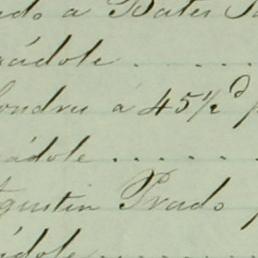 ado a Bates
ádole . . . .
ondres a 45½ d p
ádole . . . . . .
gustin Prado p
ádole